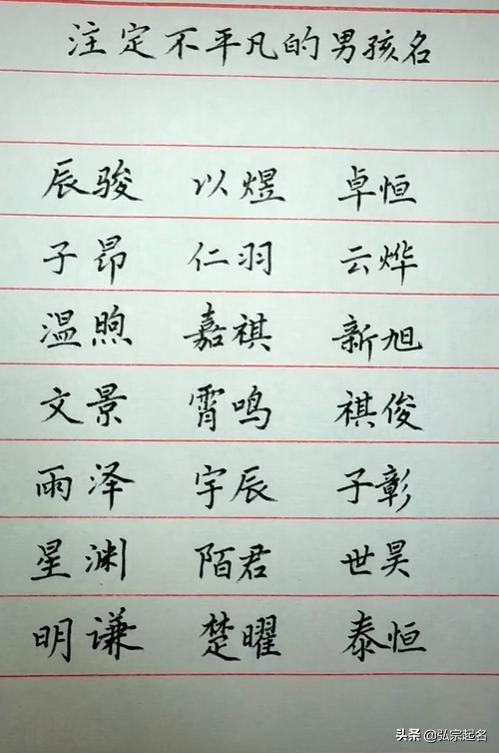 注定不平凡的男孩名
辰骏 以煜 卓恒
子昂 仁羽 云烨
温煦 嘉祺 新旭
文景 霄鸣 祺俊
雨泽 宇辰 子彰
星渊 陌君 世昊
明谦 楚曜 泰恒
头条 @弘宗起名